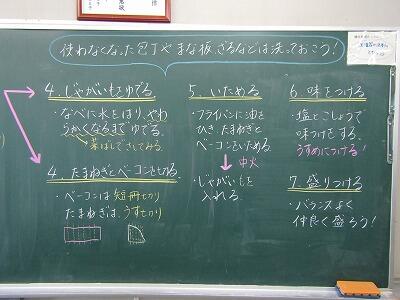 使わなくなった包丁やまな板、ざるなどは洗っておこう！
4.じゃがいもをゆでる
・なべに水をはり、やわ
らかくなるまでゆでる。
菜ばしでさしてみる
4.たまねぎとベーコンを切る
・ベーコンは短冊切り
たまねぎは、うす切り
5.いためる
・フライパンに油を
ひき、たまねぎと
ベーコンをいためる
中火
・じゃがいもを
入れる。
6.味をつける
・塩とこしょうで
味つけをする。
うすめにつける！
7.盛りつける
・バランスよく
仲良く盛ろう！